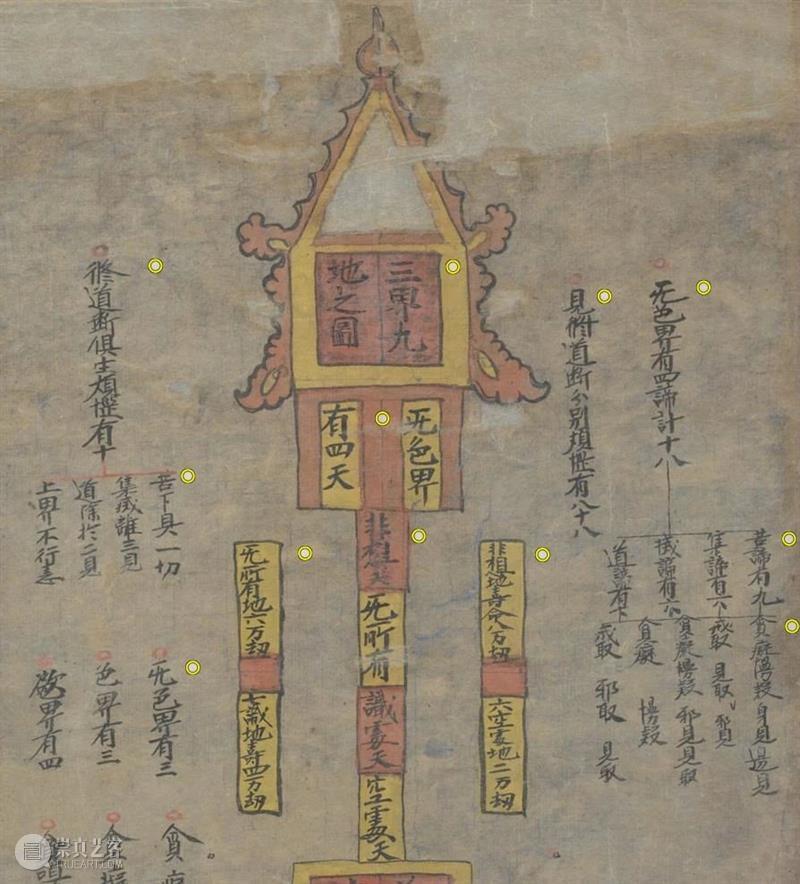 三界九
地之圖
无色界
有四天
非想天
无所有
識處天
空處天
非想地壽命八万劫
六空處地二万劫
无所有地六万劫
七識地壽四万劫
无色界有四諦計十八
苦諦有九
貪癡慢疑身見邊見
集諦有六
戒取 見取 邪見
滅諦有六
貪癡慢疑 邪見見取
道諦有下
貪癡 慢疑
戒取 邪取 見取
見修道斷分別煩惱有八十八
修道斷俱生煩惱有十
苦下具一切
集滅離三見
道除於二見
上界不行恚
无色界有三
色界有三
欲界有四
貪癡
貪
崇真艺客
TRUEART.COM